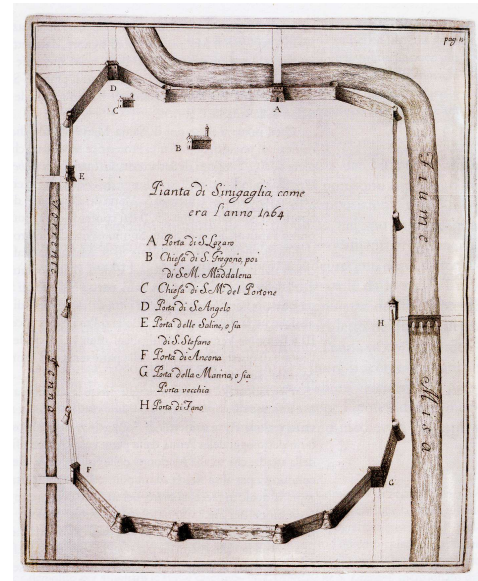 pag.
D
C
A
B
E
Fiume
Torrente
Pianta di Sinigaglia, come
era l'anno 1264
A Porta di S. Lazaro
B Chiesa di S. Gregorio, poi
di S. M. Maddalena
C Chiesa di S. Mª del Portone
D Porta di S. Angelo
E Porta delle Saline, o sia
di S. Stefano
F Porta di Ancona
G Porta della Marina, o sia
Porta vecchia
H Porta di Fano
H
Penna
Misa
F
G